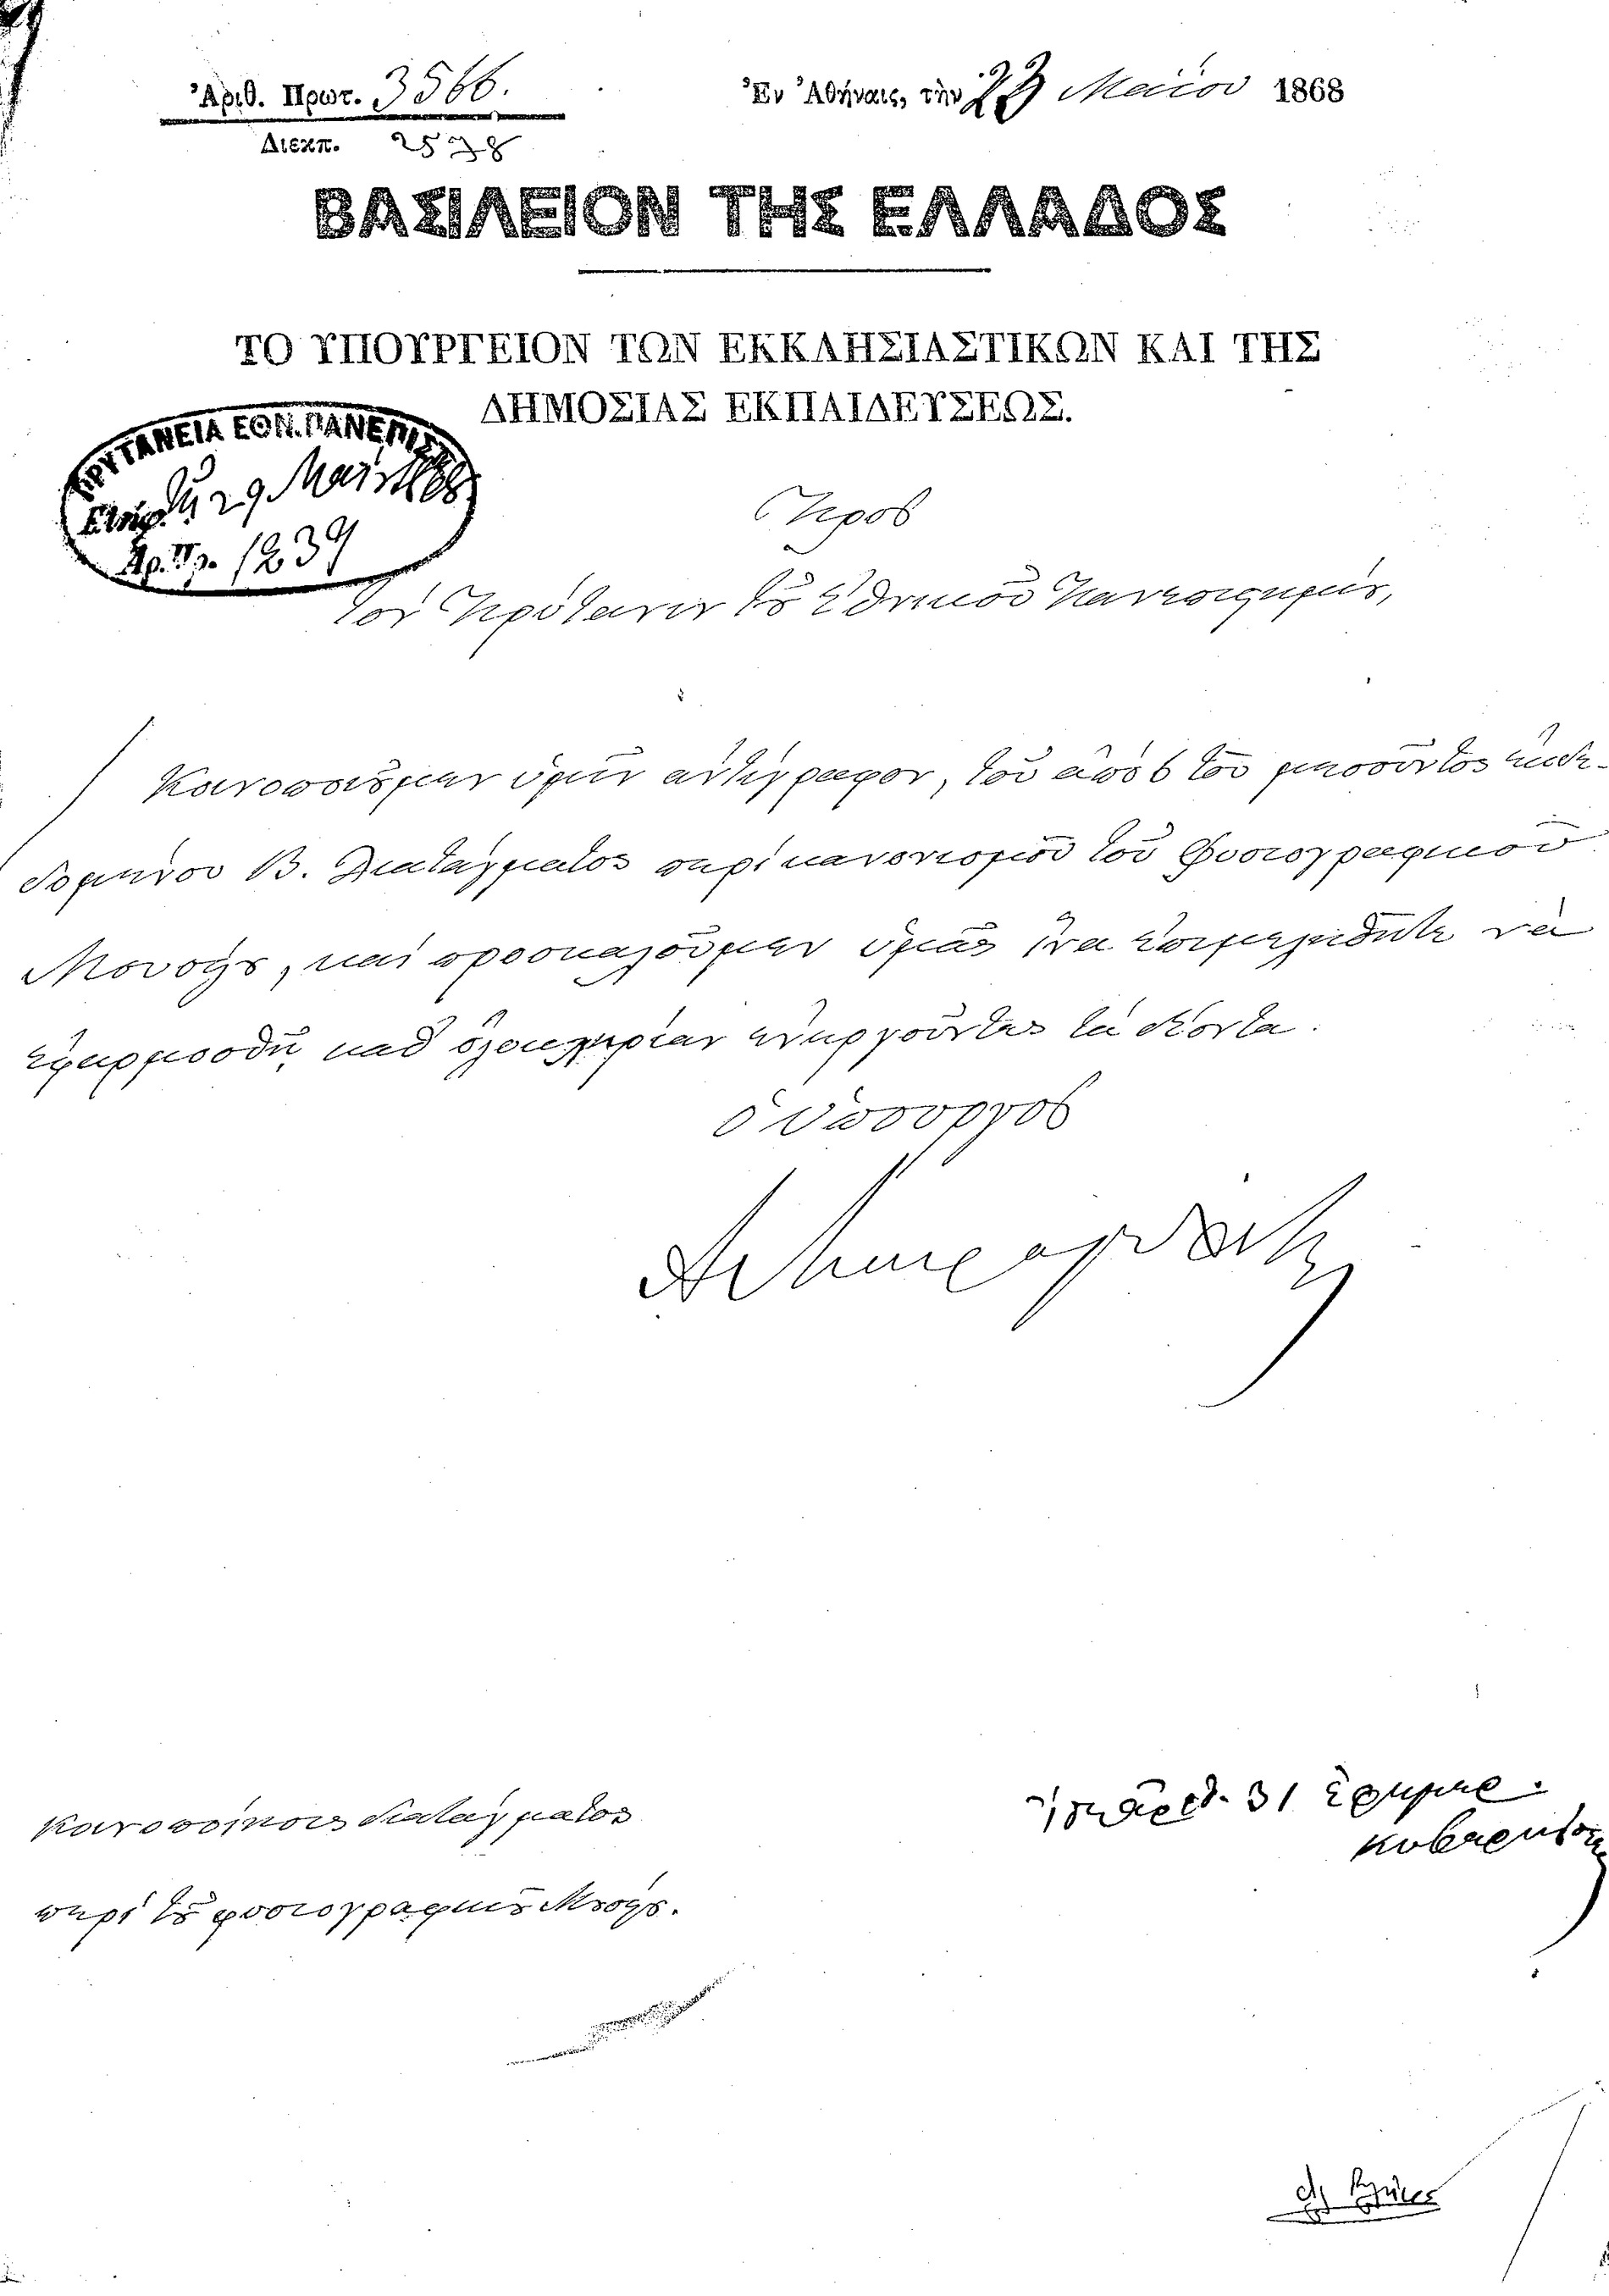 Ἀριθ. Πρωτ. 3566.
Διεκπ. 2578
Ἐν Ἀθήναις, τὴν 27 Μαΐου 1868
ΒΑΣΙΛΕΙΟΝ ΤΗΣ ΕΛΛΑΔΟΣ
ΤΟ ΥΠΟΥΡΓΕΙΟΝ ΤΩΝ ΕΚΚΛΗΣΙΑΣΤΙΚΩΝ ΚΑΙ ΤΗΣ
ΔΗΜΟΣΙΑΣ ΕΚΠΑΙΔΕΥΣΕΩΣ.
ΠΡΥΤΑΝΕΙΑ ΕΘΝ. ΠΑΝΕΠΙΣ
τῇ 29 Μαΐου 1868
Ἀρ. Πρ. 1239
Πρὸς
τὸν Πρύτανιν τοῦ Ἐθνικοῦ Πανεπιστημίου,
Κοινοποιοῦμεν ὑμῖν ἀντίγραφον, τοῦ ἀπὸ 6 τοῦ μεσοῦντος ἐκδε-
δομένου Β. Διατάγματος περὶ κανονισμοῦ τοῦ Φυσιογραφικοῦ
Μουσείου, καὶ προσκαλοῦμεν ὑμᾶς ἵνα ἐπιμεληθῆτε νὰ
ἐφαρμοσθῇ, καθ' ὁλοκληρίαν ἐνεργοῦντες τὰ δέοντα.
ὁ Ὑπουργὸς
Κοινοποίησις διατάγματος
περὶ τοῦ φυσιογραφικοῦ Μουσείου.
31